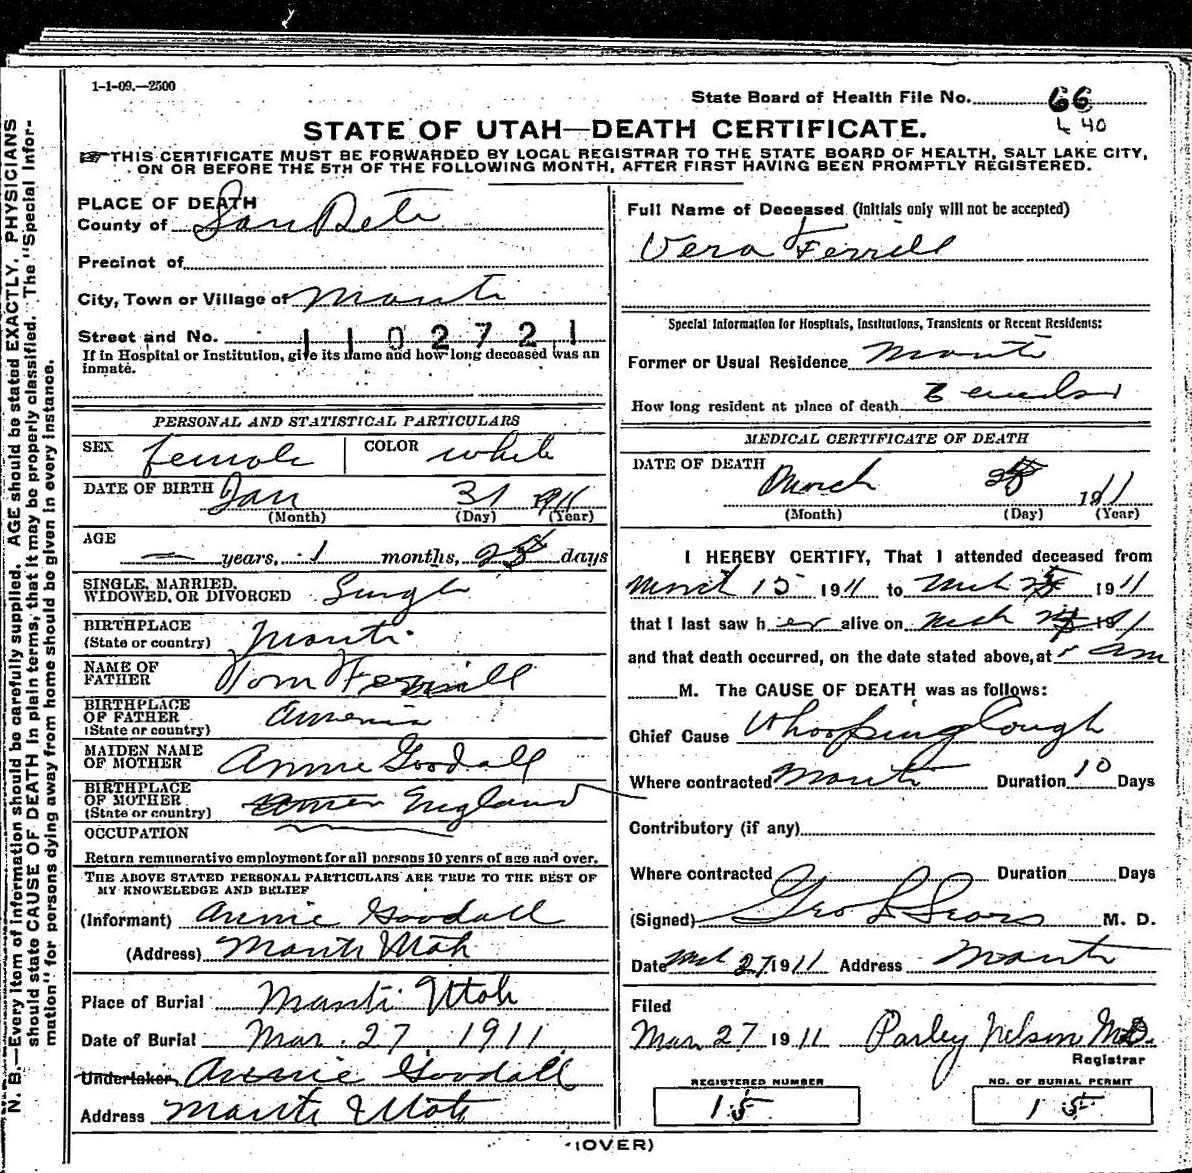 1-1-09.—2500
State Board of Health File No. 66
L 40
STATE OF UTAH—DEATH CERTIFICATE.
THIS CERTIFICATE MUST BE FORWARDED BY LOCAL REGISTRAR TO THE STATE BOARD OF HEALTH, SALT LAKE CITY,
ON OR BEFORE THE 5TH OF THE FOLLOWING MONTH, AFTER FIRST HAVING BEEN PROMPTLY REGISTERED.
N. B.—Every item of information should be carefully supplied. AGE should be stated EXACTLY. PHYSICIANS
should state CAUSE OF DEATH in plain terms, that it may be properly classified. The "Special Infor-
mation" for persons dying away from home should be given in every instance.
PLACE OF DEATH
County of San Pete
Precinct of
City, Town or Village of Manti
Street and No. 1102721
If in Hospital or Institution, give its name and how long deceased was an
inmate.
PERSONAL AND STATISTICAL PARTICULARS
SEX female COLOR white
DATE OF BIRTH Jan 31 1911
(Month) (Day) (Year)
AGE
— years, 1 months, days
SINGLE, MARRIED,
WIDOWED, OR DIVORCED Single
BIRTHPLACE
(State or country) Manti
NAME OF
FATHER Tom Ferrill
BIRTHPLACE
OF FATHER
(State or country) Armenia
MAIDEN NAME
OF MOTHER Annie Goodall
BIRTHPLACE
OF MOTHER
(State or country) England
OCCUPATION
Return remunerative employment for all persons 10 years of age and over.
THE ABOVE STATED PERSONAL PARTICULARS ARE TRUE TO THE BEST OF
MY KNOWLEDGE AND BELIEF
(Informant) Annie Goodall
(Address) Manti Utah
Place of Burial Manti Utah
Date of Burial Mar. 27 1911
Undertaker, Annie Goodall
Address Manti Utah
Full Name of Deceased (initials only will not be accepted)
Vera Ferrill
Special Information for Hospitals, Institutions, Transients or Recent Residents:
Former or Usual Residence Manti
How long resident at place of death
MEDICAL CERTIFICATE OF DEATH
DATE OF DEATH
March 1911
(Month) (Day) (Year)
I HEREBY CERTIFY, That I attended deceased from
March 15 1911 to Mch 1911
that I last saw her alive on Mch 1911
and that death occurred, on the date stated above, at am
M. The CAUSE OF DEATH was as follows:
Chief Cause Whooping Cough
Where contracted Manti Duration 10 Days
Contributory (if any)
Where contracted Duration Days
(Signed) Geo L Sears M. D.
Date Mch 27 1911 Address Manti
Filed
Mar 27 1911 Parley Nelson M.D.
Registrar
REGISTERED NUMBER
15
NO. OF BURIAL PERMIT
15
(OVER)